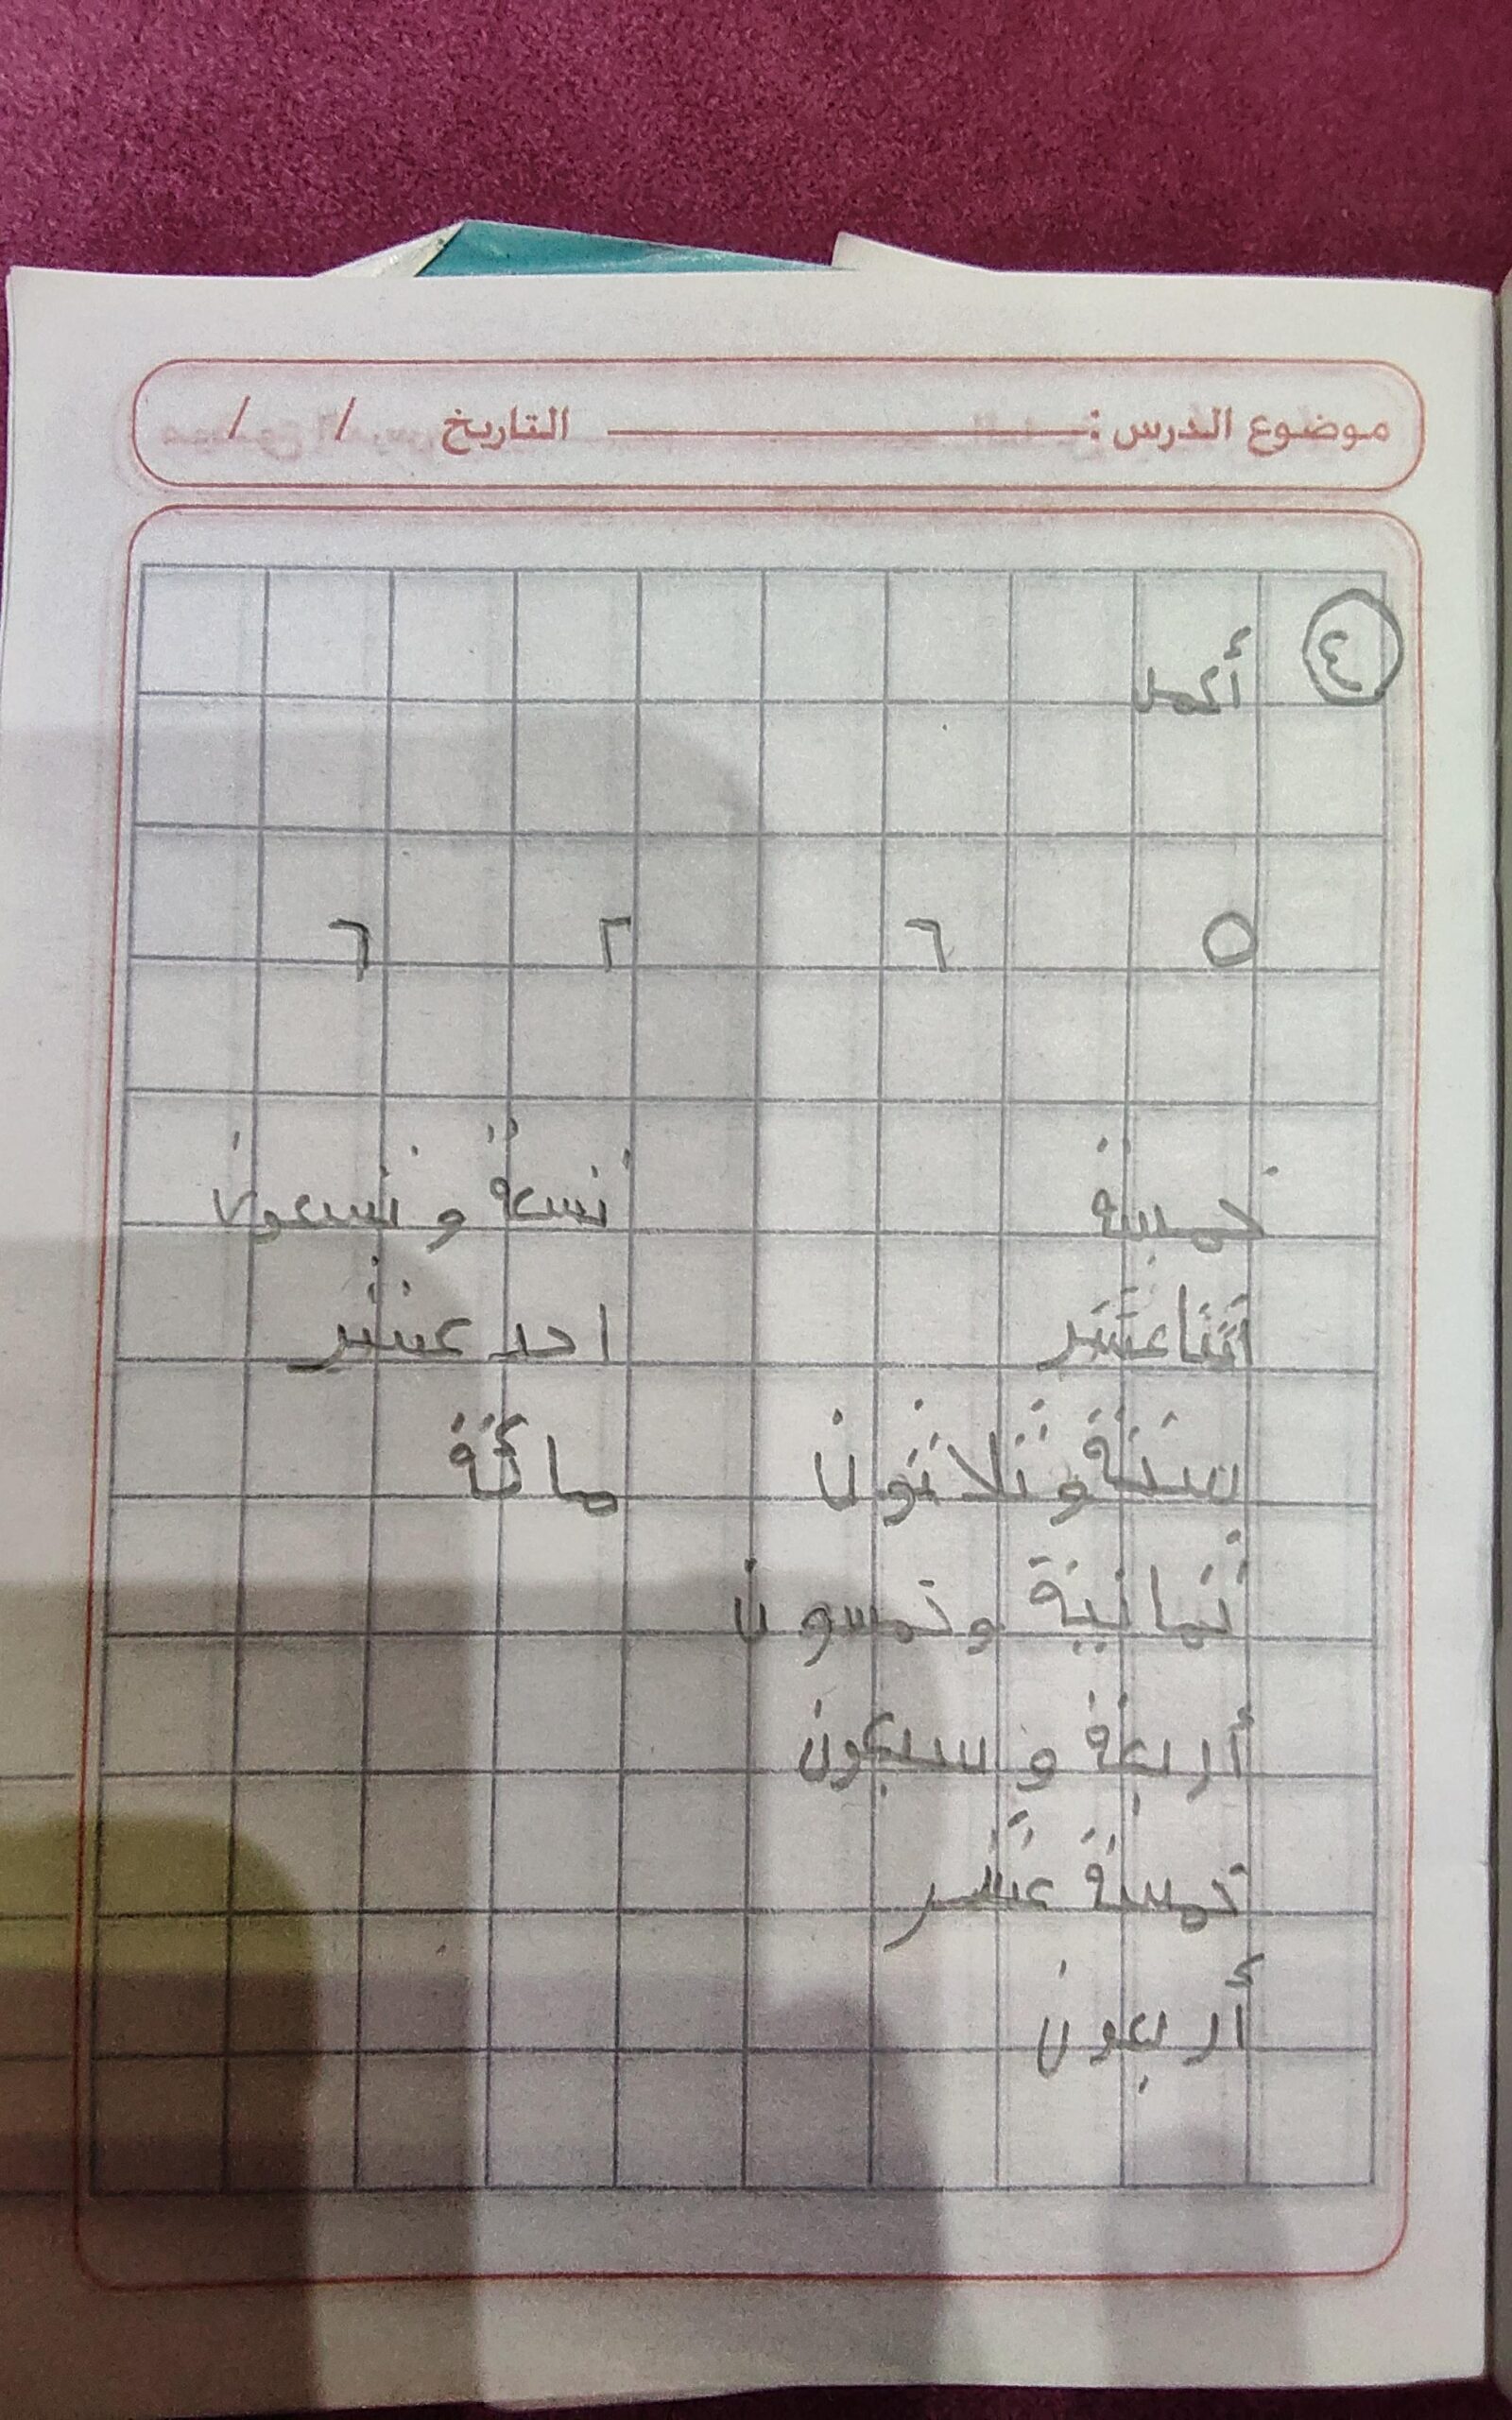 موضوع الدرس : التاريخ / /
٤ أكمل
٥ ٦ ٢ ٦
خمسة تسعة و تسعون
اثنا عشر احد عشر
ستة و ثلاثون مائة
ثمانية و خمسون
أربعة و سبعون
خمسة عشر
أربعون